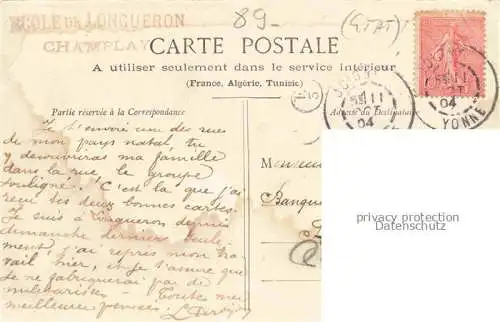 ECOLE DE LONGUERON
CHAMPLAY
89-
CARTE POSTALE
A utiliser seulement dans le service intérieur
(France, Algérie, Tunisie)
Partie réservée à la Correspondance
Adresse du Destinataire
JOIGNY
11
04
YONNE
Je t'envoie une des rues
de mon pays natal, tu
y découvriras ma famille
dans la rue le groupe
souligné. C'est là que j'ai
reçu tes deux bonnes cartes.
Je suis à Longueron depuis
dimanche dernier seule
ment, j'ai repris mon tra
vail hier, et je t'assure que
je ne fabriquerai pas de
militaristes - Toutes mes
meilleures pensées.
Monsieur
Banque
privacy protection
Datenschutz